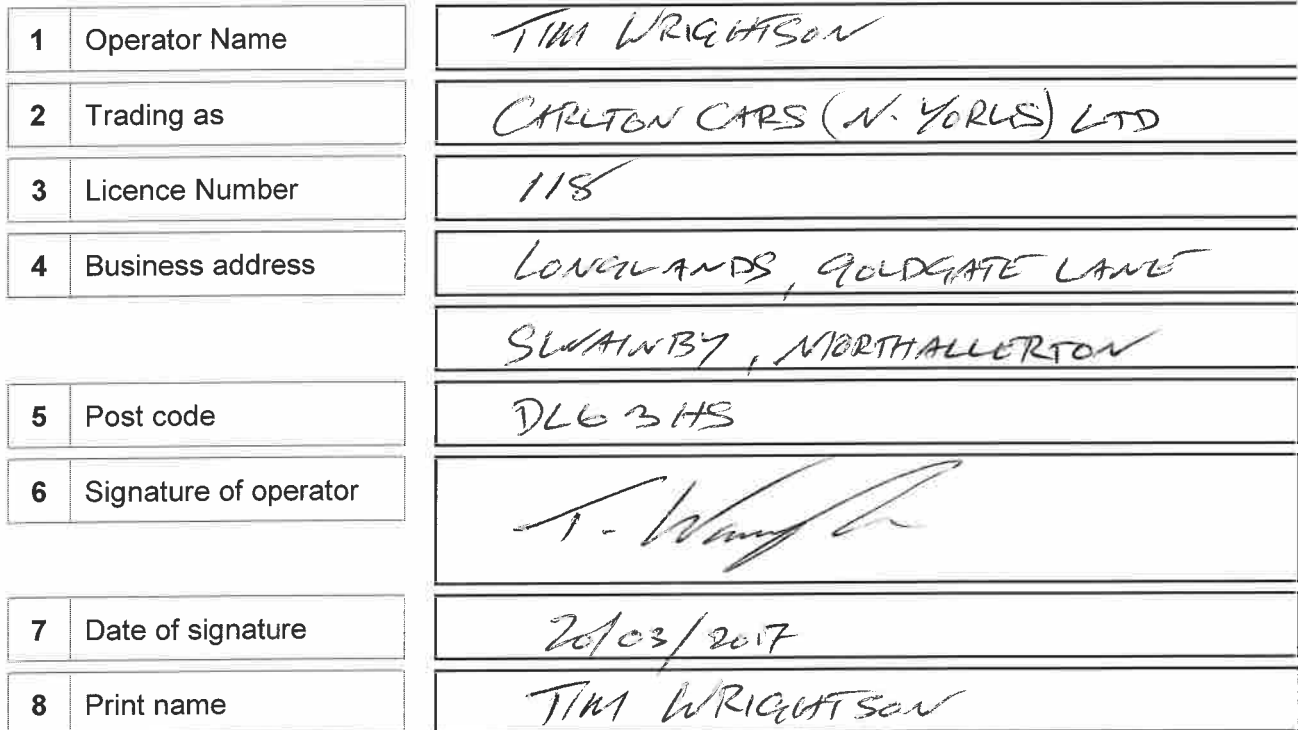 1 Operator Name TIM WRIGHTSON
2 Trading as CARLTON CARS (N. YORKS) LTD
3 Licence Number 118
4 Business address LONGLANDS, GOLDGATE LANE
SWAINBY, NORTHALLERTON
5 Post code DL6 3HS
6 Signature of operator T. 
7 Date of signature 20/03/2017
8 Print name TIM WRIGHTSON